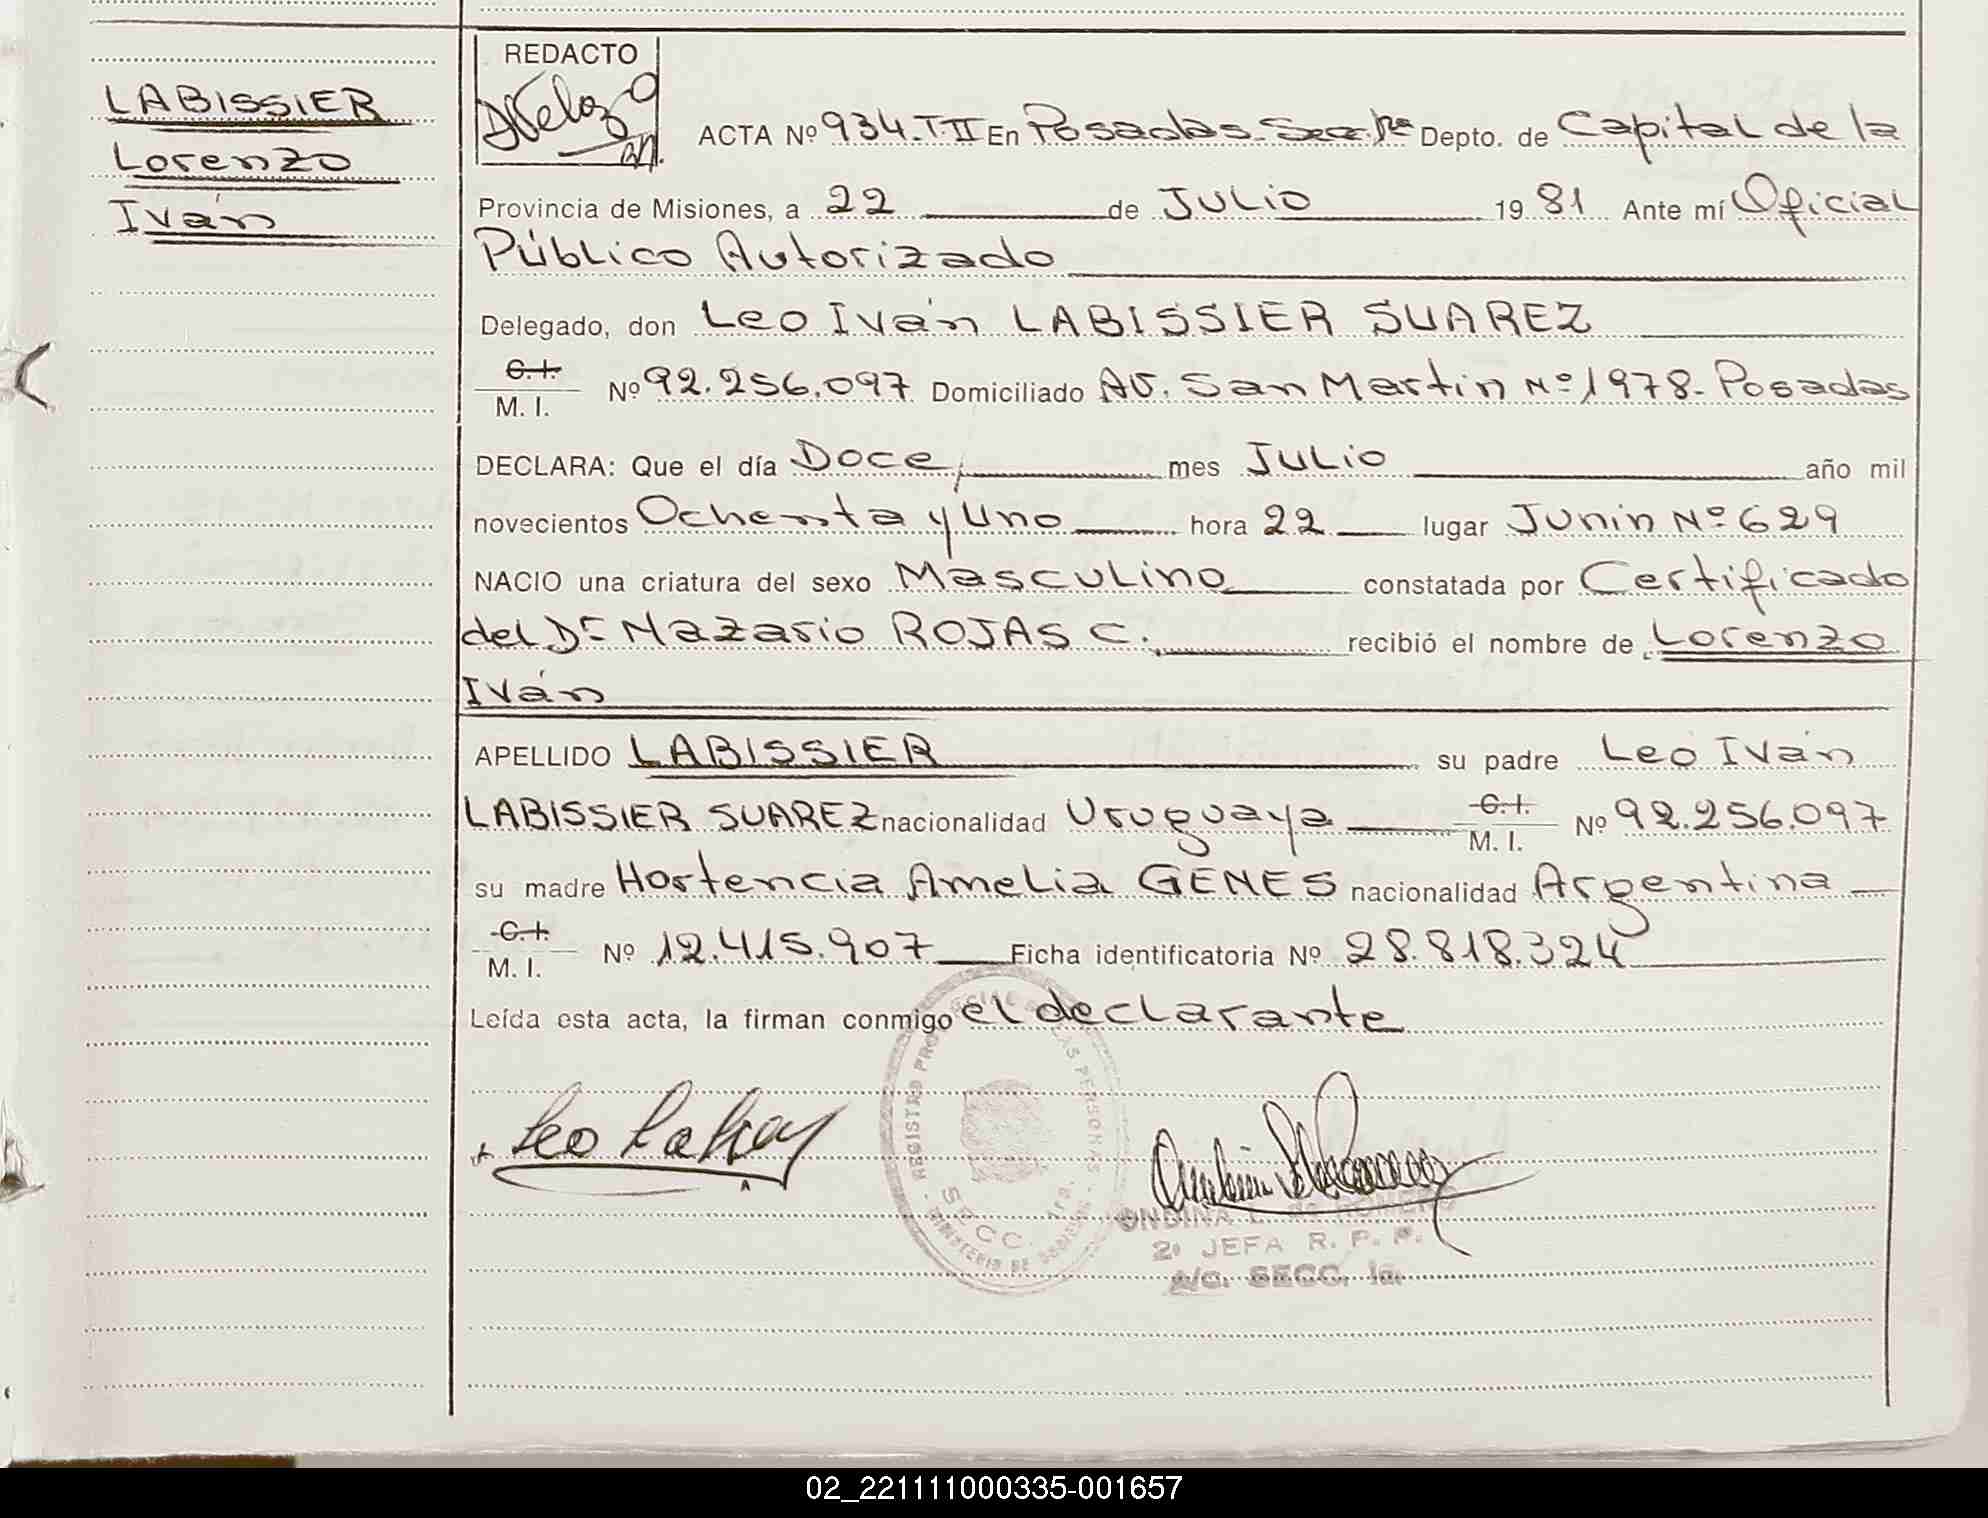 LABISSIER
Lorenzo
Iván
REDACTO
ACTA Nº 934.T.II En Posadas-Secc.1ra Depto. de Capital de la
Provincia de Misiones, a 22 de Julio 1981 Ante mí Oficial
Público Autorizado
Delegado, don Leo Iván LABISSIER SUAREZ
C.I. / M. I. Nº 92.256.097 Domiciliado Av. San Martin Nº 1978- Posadas
DECLARA: Que el día Doce, mes Julio año mil
novecientos Ochenta y Uno hora 22 lugar Junin Nº 629
NACIO una criatura del sexo Masculino constatada por Certificado
del Dr Nazario ROJAS C. recibió el nombre de Lorenzo
Iván
APELLIDO LABISSIER su padre Leo Iván
LABISSIER SUAREZ nacionalidad Uruguaya C.I. / M. I. Nº 92.256.097
su madre Hortencia Amelia GENES nacionalidad Argentina
C.I. / M. I. Nº 12.415.907 Ficha identificatoria Nº 28.818.324
Leída esta acta, la firman conmigo el declarante
ONDINA L. de ROMERO
2º JEFA R. P. P.
A/C. SECC. 1a.
02_221111000335-001657